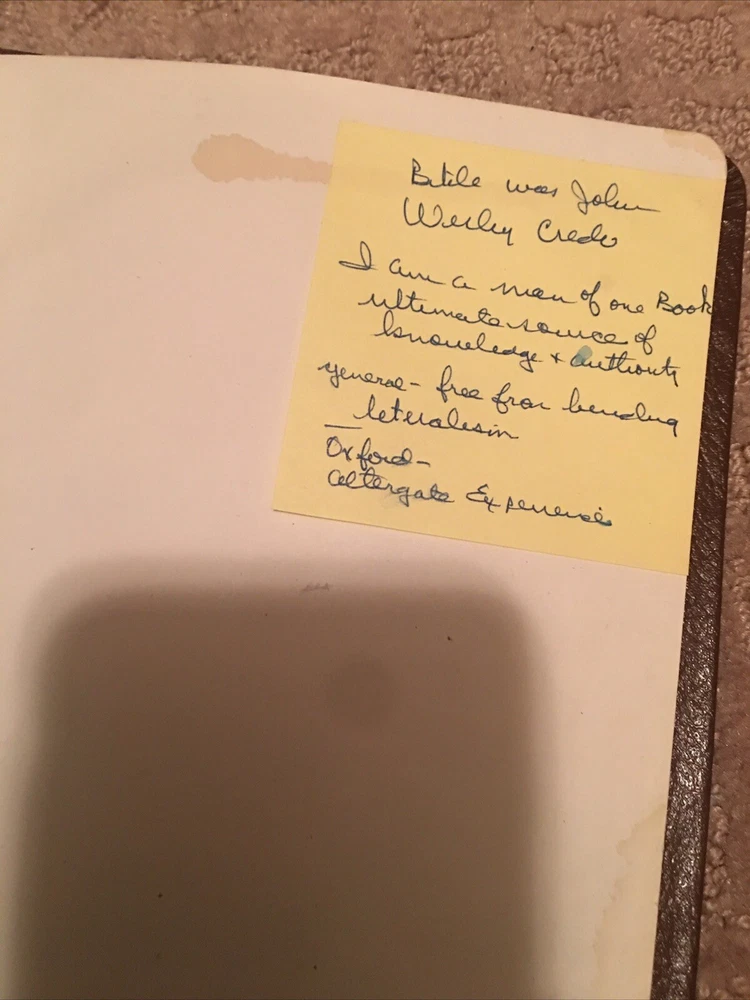 Bible was John
Wesley Credo
I am a man of one Book
ultimate source of
knowledge + authority
general - free from binding
literalism
Oxford -
altergate Experience